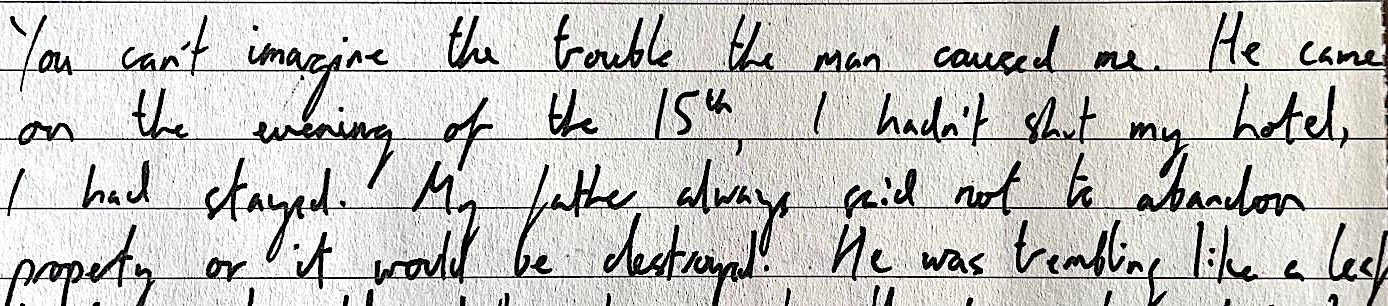 You can't imagine the trouble the man caused me. He came
on the evening of the 15th, I hadn't shut my hotel,
I had stayed. My father always said not to abandon
property or it would be destroyed. He was trembling like a leaf